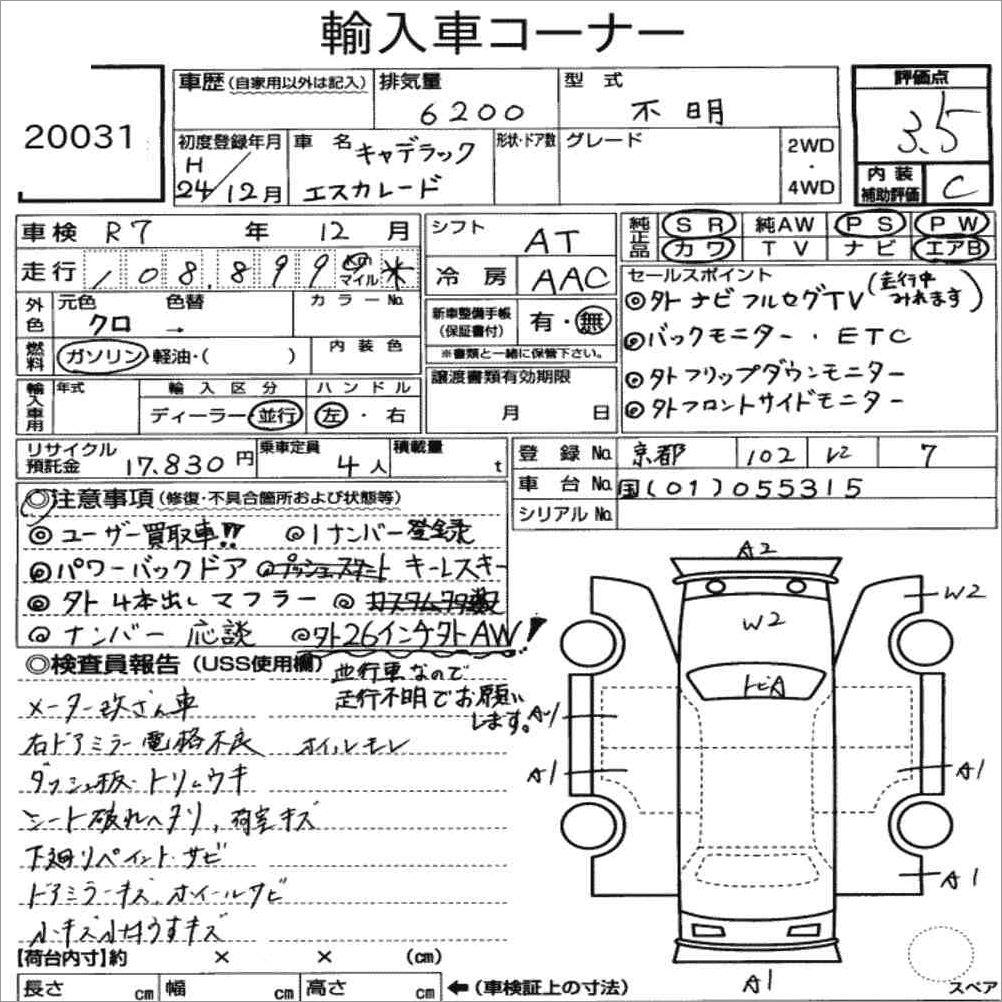 輸入車コーナー
20031
車歴（自家用以外は記入） 排気量 6200 型式 不明 評価点 3.5
初度登録年月 H24/12月 車名 キャデラック エスカレード 形状・ドア数 グレード 2WD・4WD 内装補助評価 C
車検 R7年 12月 シフト AT 純正品 SR 純AW PS PW
カワ TV ナビ エアB
走行 108,899 km マイル 冷房 AAC
セールスポイント
◎外ナビフルセグTV（走行中みれます）
◎バックモニター・ETC
◎外フリップダウンモニター
◎外フロントサイドモニター
外色 元色 クロ 色替 → カラーNo.
新車整備手帳（保証書付） 有・無
※書類と一緒に保管下さい。
燃料 ガソリン 軽油・（ ） 内装色
譲渡書類有効期限 月 日
輸入車用 年式 輸入区分 ディーラー 並行 ハンドル 左・右
リサイクル預託金 17,830円 乗車定員 4人 積載量 t
登録No. 京都 102 に 7
車台No. 国(01)055315
シリアルNo.
◎注意事項（修復・不具合箇所および状態等）
◎ユーザー買取車!! ◎1ナンバー登録
◎パワーバックドア ◎プッシュスタート キーレスキー
◎外4本出しマフラー ◎
◎ナンバー応談 ◎外26インチ外AW!
並行車なので
走行不明でお願いします。
◎検査員報告（USS使用欄）
メーター改ざん車
右ドアミラー電格不良 オイルモレ
ダッシュ板・トリムウキ
シート破れヘタリ、荷室キズ
下廻りペイント・サビ
ドアミラーキズ、ホイールサビ
小キズ小凹うすキズ
A2
W2
W2
トビA
A1
A1
A1
A1
A1
スペア
【荷台内寸】約 × × （cm）
長さ cm 幅 cm 高さ cm ←（車検証上の寸法）